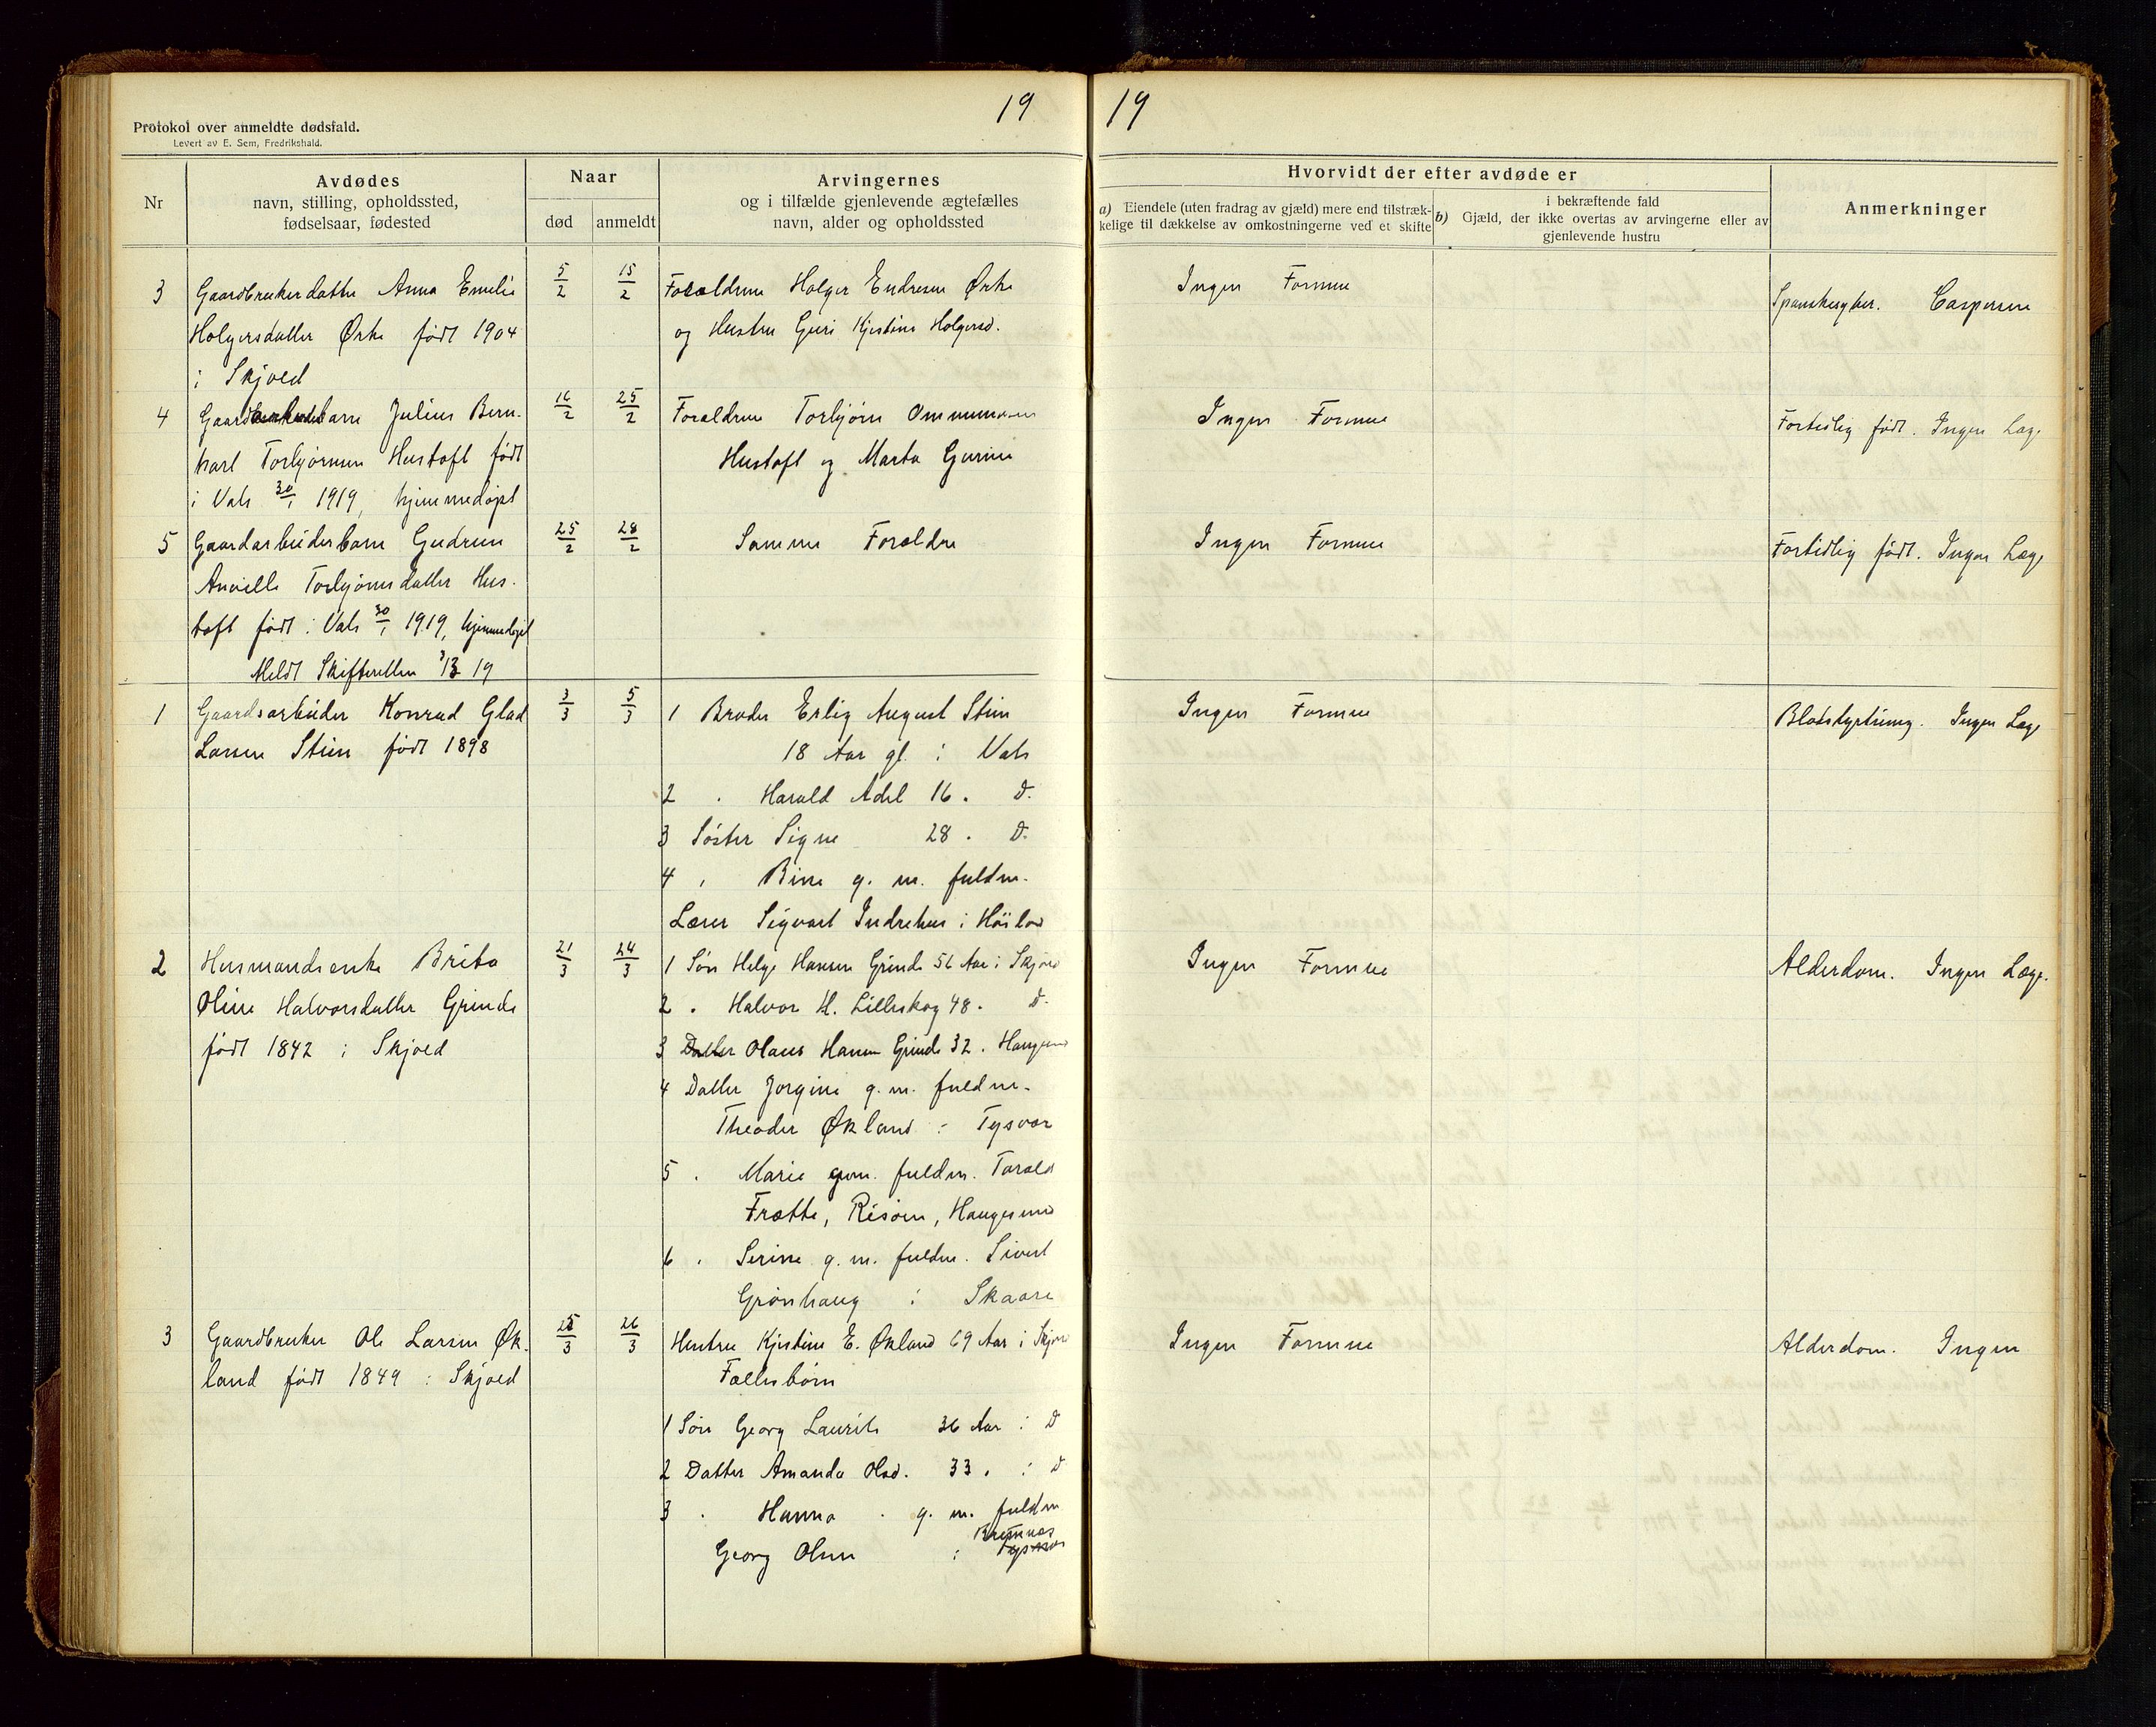 19
Protokol over anmeldte dødsfald.
Levert av E. Sem, Fredrikshald.
Nr
Avdødes
navn, stilling, opholdssted,
fødselsaar, fødested
Naar
død
anmeldt
Arvingernes
og i tilfælde gjenlevende ægtefælles
navn, alder og opholdssted
3 Gaardbrukerdatter Anna Emelie 5/2 15/2 Forældrene Holger Endresen Ørke
Holgersdatter Ørke født 1904 og Hustru Guri Kjistine Holgersd.
i Skjold
4 Julius Bern- 16/2 25/2 Forældrene Torbjørn Ommundsen
hart Torbjørnsen Hustoft født Hustoft og Marta Gurine
i Vats 30/1 1919, hjemmedøpt
5 Gaardarbeiderbarn Gudrun 25/2 28/2 Samme Forældre
Torbjørnsdatter Hus-
toft født i Vats 30/1 1919, hjemmedøpt
Meldt Skifteretten 19
1 Gaardsarbeider Konrad Glad 3/3 5/3 1 Broder Erling August Stien
Larsen Stien født 1898 18 Aar gl. i Vats
2 . Harald Adel 16 . D.
3 Søster Signe 28 . D.
4 , Bine g. m. fuldm.
Lærer Sigvart Indrehus i
2 Husmandsenke Brita 21/3 24/3 1 Søn Helge Hansen Grinde 56 Aar i Skjold
Oline Halvorsdatter Grinde 2 . Halvor H. Lilleskog 48 . D.
født 1842 i Skjold 3 Olaus Hansen Grinde 32 .
4 Datter Jorgine g. m. fuldm.
Theodor Økland i Tysvær
5 . Marie gm. fuldm. Torald
Frette, Risøen, Haugesund
6 . Serine g. m. fuldm. Sivert
Grønhaug i Skaare
3 Gaardbruker Ole Larsen Øk- 25/3 26/3 Hustru Kjistine E. Økland 69 Aar i Skjold
land født 1849 i Skjold Fællesbørn
1 Søn Georg Laurits 36 Aar i D
2 Datter Amanda Olsd. 33 . i D
3 . Hanna . g. m. fuldm
Bremnes
Georg Olsen i Tysvær
19
Hvorvidt der efter avdøde er
a) Eiendele (uten fradrag av gjæld) mere end tilstræk-
kelige til dækkelse av omkostningerne ved et skifte
i bekræftende fald
b) Gjæld, der ikke overtas av arvingerne eller av
gjenlevende hustru
Anmerkninger
Ingen Formue Spanskesyken. Caspersen
Ingen Formue Fortidlig født. Ingen Læge
Ingen Formue Fortidlig født. Ingen Læge
Ingen Formue Blodstyrtning. Ingen Læge
Ingen Formue Alderdom. Ingen Læge.
Ingen Formue Alderdom. Ingen